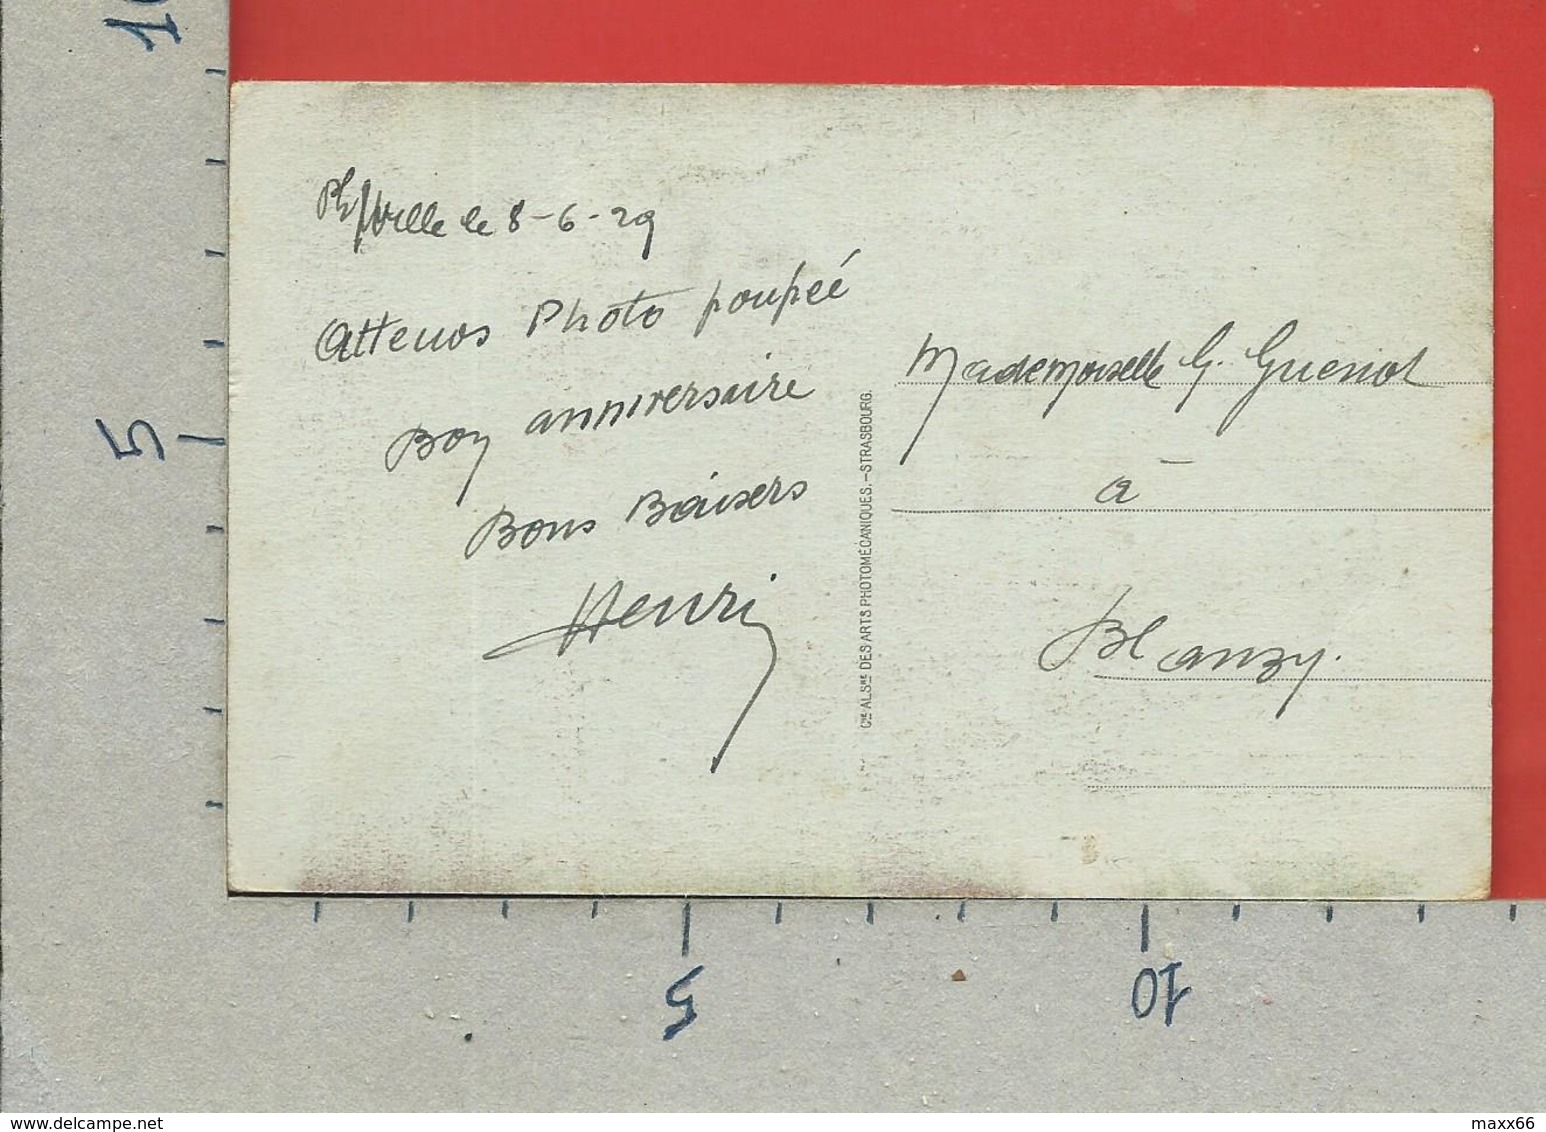 Ph/ville le 8-6-29
Attenos Photo poupéé
Bon anniversaire
Bons Baisers
Henri
Cie ALSNE DES ARTS PHOTOMÉCANIQUES.-STRASBOURG.
Mademoiselle G. Gueniot
à
Blanzy.
10
5
5
10
www.delcampe.net
maxx66